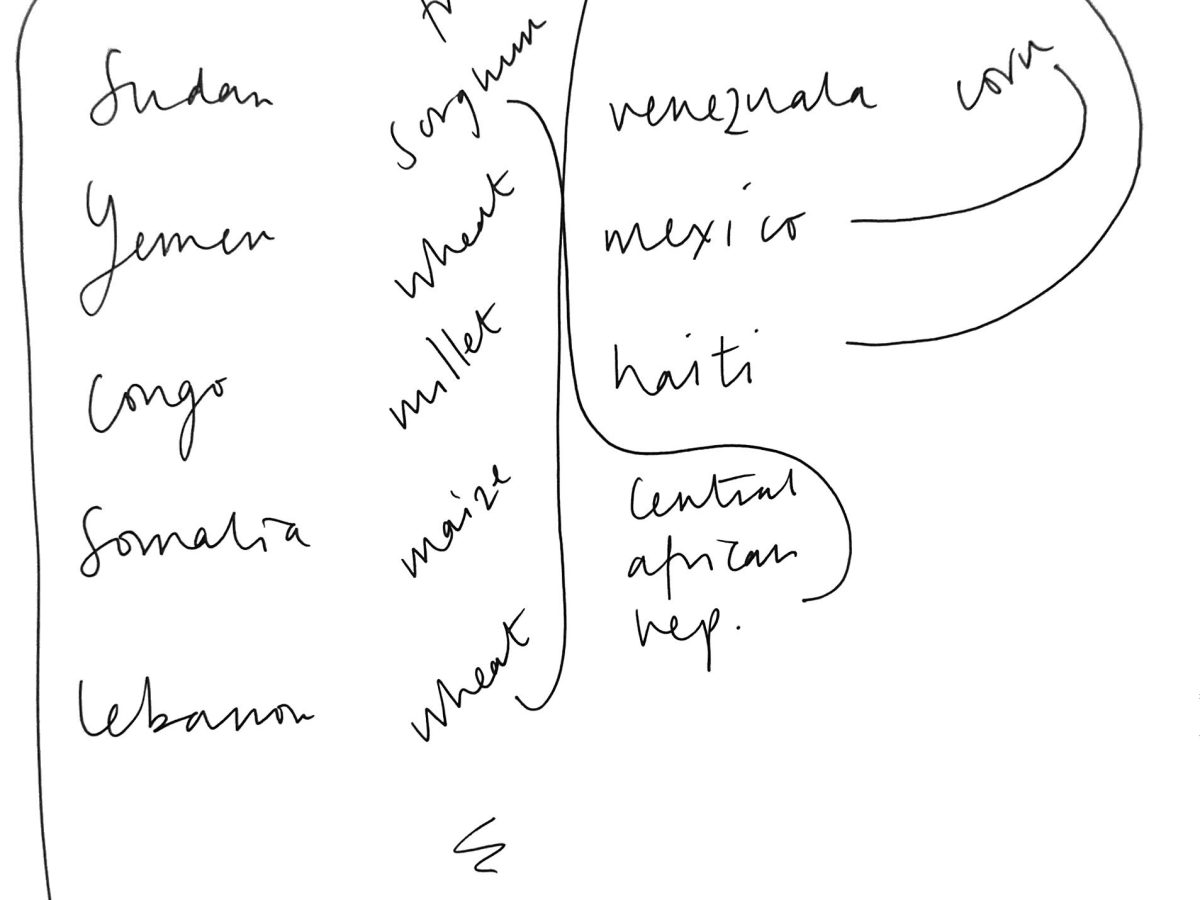 Sudan sorghum venezuala corn
Yemen wheat mexico
Congo millet haiti
Somalia maize central
african
rep.
Lebanon wheat